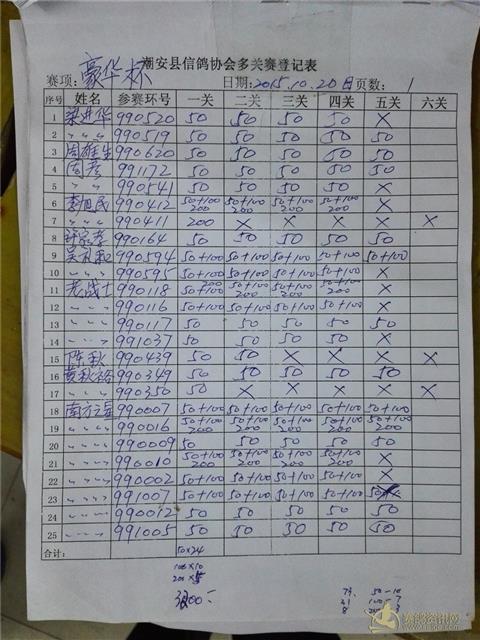 潮安县信鸽协会多关赛登记表
赛项: 豪华杯 日期: 2015.10.20日 页数: 1
序号 姓名 参赛环号 一关 二关 三关 四关 五关 六关
1 梁进华 990520 50 50 50 50 X
2 〃 〃 〃 990519 50 50 50 50 50
3 周雄生 990620 50 50 50 50 50
4 周彦 991172 50 50 50 50 50
5 〃 〃 990541 50 50 50 50 X
6 李旭民 990412 50+100 200 50+100 200 50+100 200 50+100 200 X
7 〃 〃 〃 990411 200 X X X X X
8 990164 50 50 50 50 50
9 吴礼和 990594 50+100 50+100 50+100 50+100 50+100
10 〃 〃 〃 990595 50+100 50+100 50+100 50+100 X
11 老战士 990118 50+100 200 50+100 200 50+100 200 50+100 200 X
12 〃 〃 〃 990116 50+100 50+100 50+100 50+100 X
13 〃 〃 〃 990117 50 50 50 50 50
14 〃 〃 〃 991037 50 50 50 50 X
15 陈秋 990439 50 50 X X X X
16 黄秋裕 990349 50 50 50 50 50
17 〃 〃 〃 990350 50 X X X X X
18 南方之星 990007 50+100 50+100 50+100 50+100 50+100
19 〃 〃 〃 990016 50+100 200 50+100 200 50+100 200 50+100 200 50+100 200
20 〃 〃 〃 990009 50 50 50 50 50
21 〃 〃 〃 990010 50+100 200 50+100 200 50+100 200 50+100 200 X
22 〃 〃 〃 990002 50+100 50+100 50+100 50+100 X
23 〃 〃 〃 991007 50+100 50+100 50+100 50+100
24 〃 〃 〃 990012 50 50 50 50 50
25 〃 〃 〃 991005 50 50 50 50 50
合计:
50×24
100×10
200×5
3200=
50-10
31 100-7
8